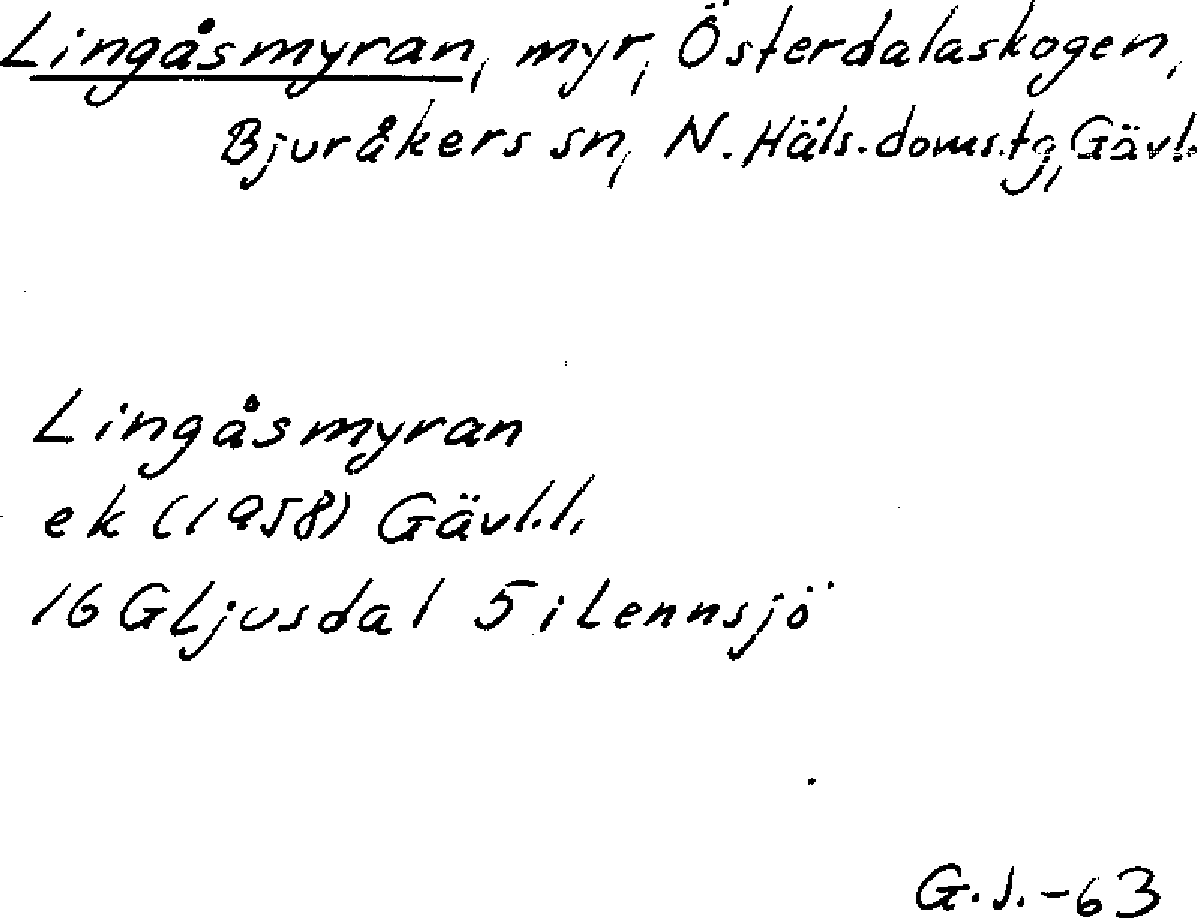 Lingåsmyran, myr, Österdalaskogen,
Bjuråkers sn, N. Häls. doms.tg, Gävl.
Lingåsmyran
ek (1958) Gävl.l.
16G Ljusdal 5 i Lennsjö
G.J.-63